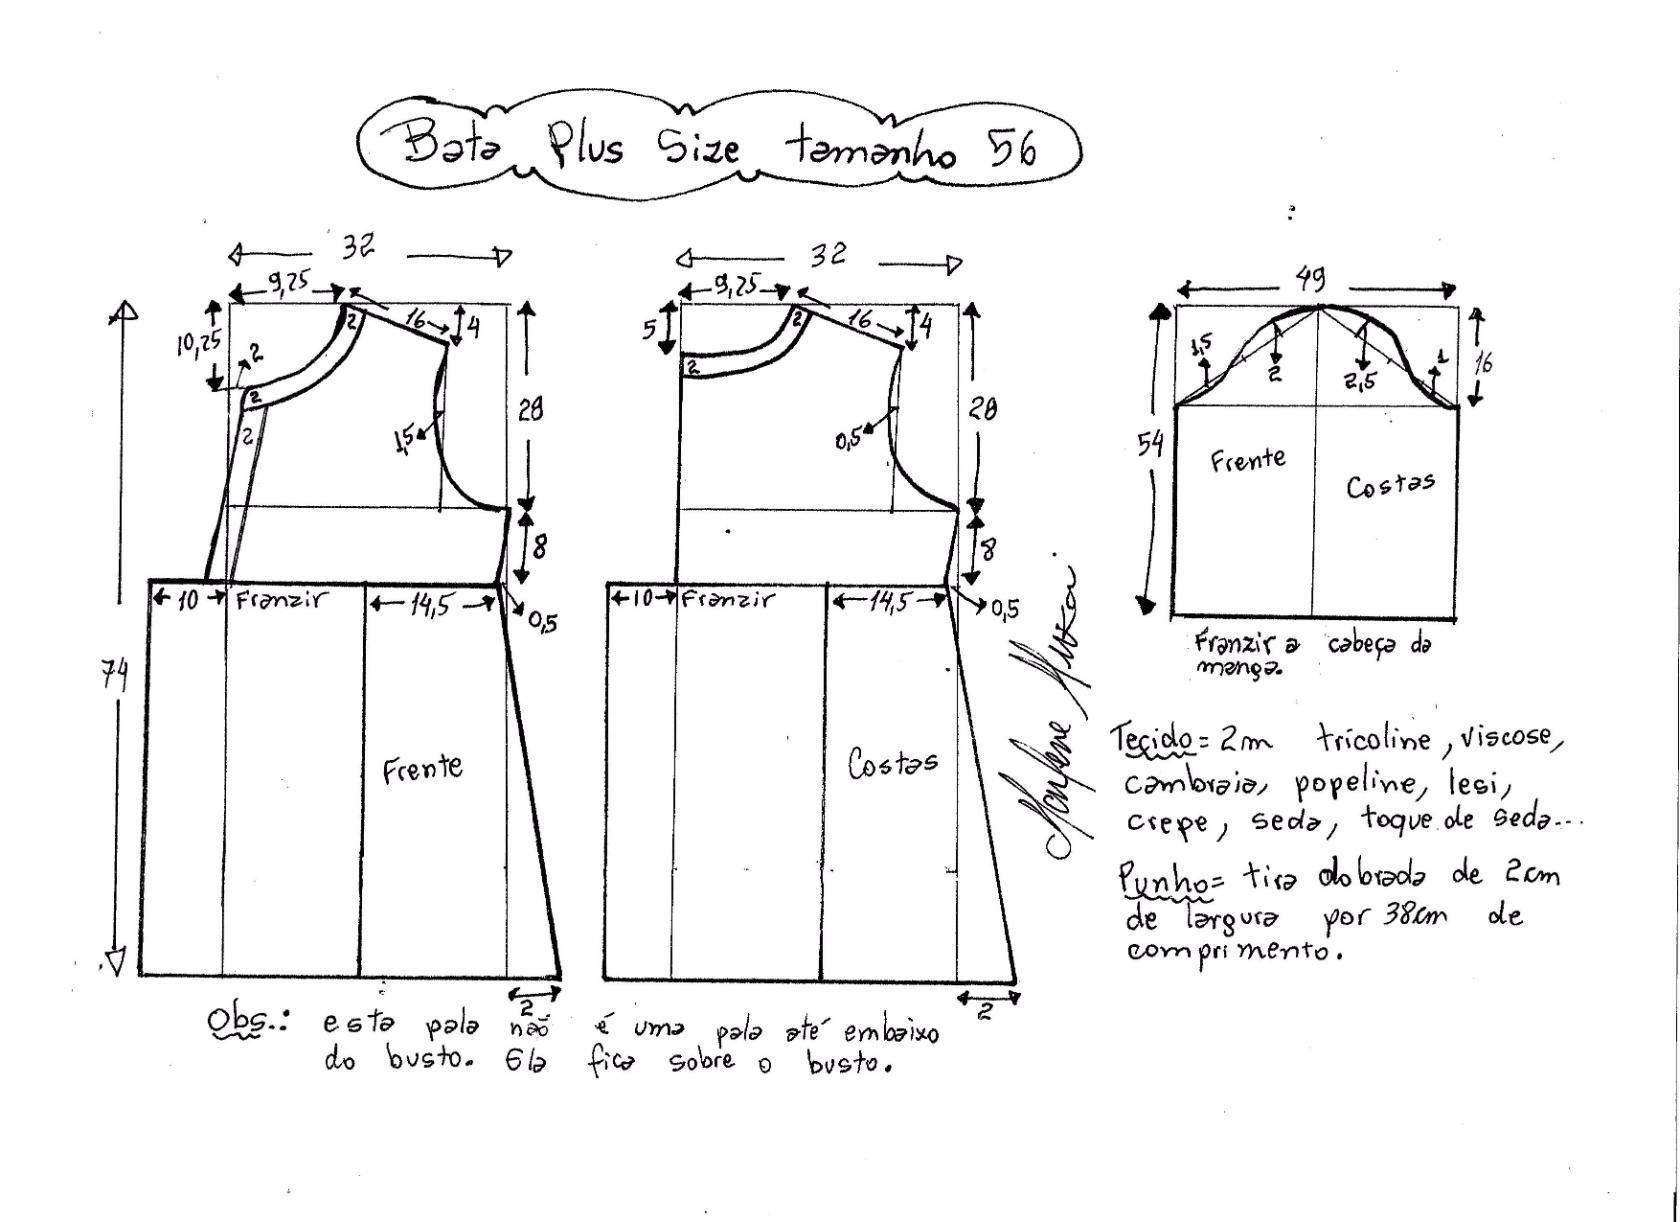 Bata Plus Size tamanho 56
32
9,25
10,25
16
4
2
2
2
2
1,5
28
8
10
Franzir
14,5
0,5
74
Frente
2
32
9,25
5
16
4
2
2
0,5
28
8
10
Franzir
14,5
0,5
Costas
2
49
1,5
2
2,5
1
16
54
Frente
Costas
Franzir a cabeça da
manga.
Tecido = 2m tricoline, viscose,
cambraia, popeline, lesi,
crepe, seda, toque de seda...
Punho = tira dobrada de 2cm
de largura por 38cm de
comprimento.
Obs.: esta pala não é uma pala até embaixo
do busto. Ela fica sobre o busto.